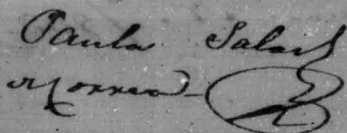 Paula Salas
Moreno